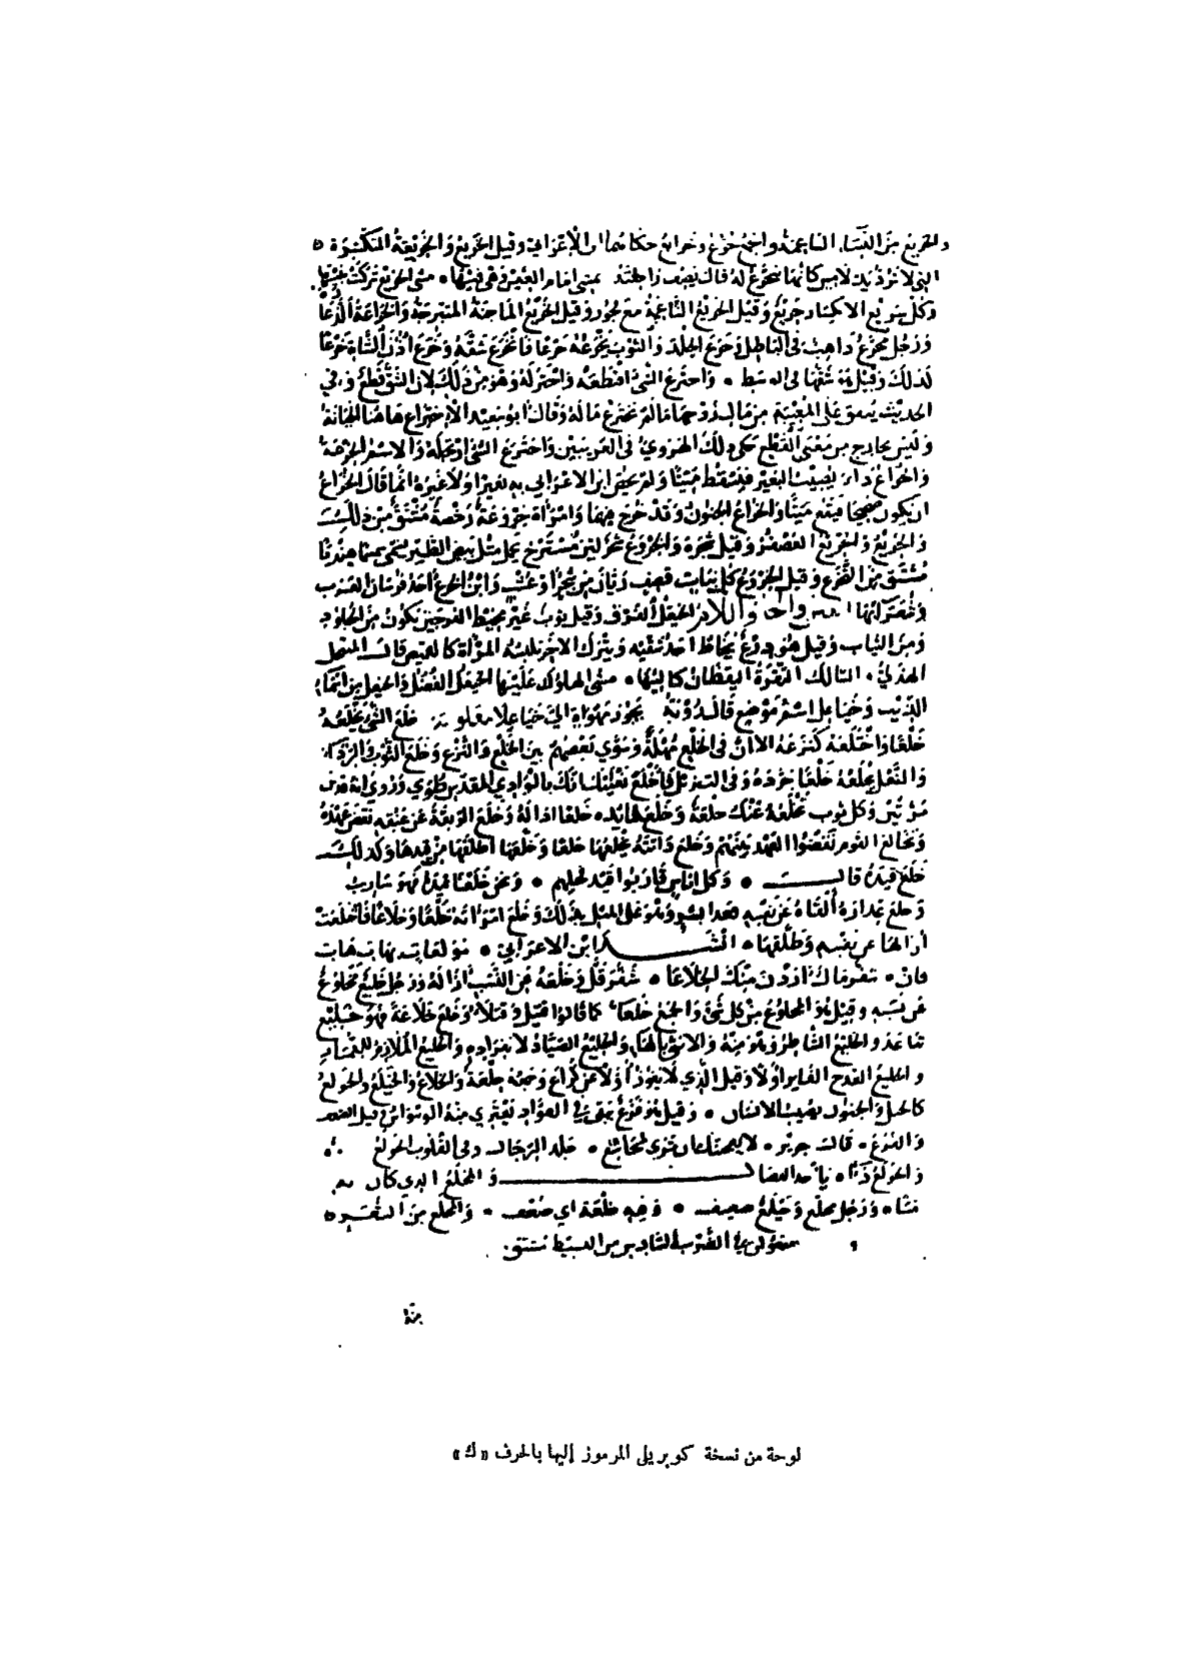 والخريع من النساء الناعمة والجمع خرع وخرائع حكاهما ابن الأعرابي وقيل الخريع والخريعة المتكسرة
التي لا ترد يد لامس كأنها تتخرع له قال يصف راحلته تمشي أمام العيس وهي فيها مشي الخريع تركت بنيها
وكل سريع الانكسار خريع وقيل الخريع الناعمة مع فجور وقيل الخريع الماجنة المتبرجة والخراعة الدعارة
ورجل مخرع ذاهب في الباطل وخرع الجلد والثوب يخرعه خرعا فانخرع شقه وخرع أذن الشاة خرعا
كذلك وقيل هو شقها في الوسط واخترع الشيء اقتطعه واختزله وهو من ذلك لأن الشق قطع وفي
الحديث ينفق على المغيبة من مال زوجها ما لم تخترع ماله وقال أبو سعيد الاختراع هاهنا الخيانة
وليس بخارج من معنى القطع حكى ذلك الهروي في الغريبين واخترع الشيء ارتجله والاسم الخرعة
والخراع داء يصيب البعير فيسقط ميتا ولم يخص ابن الأعرابي به بعيرا ولا غيره إنما قال الخراع
أن يكون صحيحا فيقع ميتا والخراع الجنون وقد خرع فيهما وامرأة خروعة رخصة مشتق من ذلك
والخريع والخريع العصفر وقيل شجره والخروع شجر لين مسترخ يحمل مثل بيض الطير يسمى سمسما هنديا
مشتق من التخرع وقيل الخروع كل نبات قصيف ريان من شجر أو عشب وابن الخرع أحد فرسان العرب
وشعرائها واللام الخيعل الفرو وقيل ثوب غير مخيط الفرجين يكون من الجلود
ومن الثياب وقيل هو درع يخاط أحد شقيه ويترك الآخر تلبسه المرأة كالقميص قال المتنخل
الهذلي السالك الثغرة اليقظان كالئها مشي الهلوك عليها الخيعل الفضل والخيعل من أسماء
الذئب وخياعل اسم موضع قال رؤبة خلع الشيء يخلعه
خلعا واختلعه كنزعه إلا أن في الخلع مهلة وسوى بعضهم بين الخلع والنزع وخلع الثوب والرداء
والنعل يخلعه خلعا جرده وفي التنزيل فاخلع نعليك إنك بالوادي المقدس طوى وروي
وكل ثوب تخلعه عنك خلعة وخلع قائده خلعا أذاله وخلع الربقة عن عنقه نقض عهده
وتخالع القوم نقضوا العهد بينهم وخلع دابته يخلعها خلعا وخلعها أطلقها من قيدها وكذلك
خلع قيده قال وكل أناس قاربوا قيد فحلهم ونحن خلعنا قيده فهو سارب
وخلع عذاره ألقاه عن نفسه فعدا بشر وهو على المثل بذلك وخلع امرأته خلعا وخلاعا فاختلعت
أزالها عن نفسه وطلقها أنشد ابن الأعرابي مولعات بهات هات
فإن شفر مال أردن منك الخلاعا شفر قل وخلعه عن النسب أزاله ورجل خليع مخلوع
عن نسبه وقيل هو المخلوع من كل شيء والجمع خلعاء كما قالوا قتيل وقتلاء وخلع خلاعة فهو خليع
تباعد والخليع الشاطر وهو منه والأنثى بالهاء والخليع الصياد لانفراده والخليع الملازم للقمار
والخليع القدح الفائز أولا وقيل الذي لا يفوز أولا عن كراع وجمعه خلعة والخلاع والخيلع والخولع
كالخبل والجنون يصيب الإنسان وقيل هو فزع يبقى في الفؤاد يعتري منه الوسواس وقيل الضعف
والفزع قال جرير لا يعجبنك أن ترى لمجاشع جلد الرجال وفي القلوب الخولع
والخولع داء يأخذ الفصال والمخلع الذي كأن به
مسا ورجل مخلع وخيلع ضعيف وفيه خلعة أي ضعف والمخلع من الشعر
مفعولن في الضرب السادس من البسيط مشتق
منه
لوحة من نسخة كوبريلي المرموز إليها بالحرف «ك»